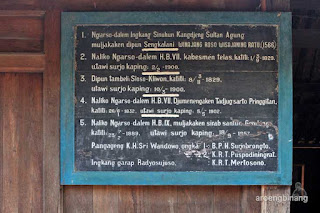 1. Ngarso-dalem Ingkang Sinuhun Kangdjeng Sultan Agung
muljakaken dipun Sengkalani WINAJANG ROSO WISOJANING RATU(1566)
2. Naliko Ngarso-dalem H.B.VII, kabesmen telas, kalih:
ulawi surjo kaping: -1900.
3. Dipun tambeli Sisso-Kliwon, kalih: 8/ -1829.
ulawi surjo kaping: 10/ -1900.
4. Naliko Ngarso-dalem H.B.VII, Djumenengaken Tadjug sarto Pringgitan,
kalih: -1829, ulawi surjo kaping: -1902.
5. Naliko Ngarso-dalem H.B.IX, muljakaken sirab santun
kalih: -1899, ulawi surjo kaping: -1957.
Pangageng K.H.Sri Wandowo, angka 1:- B.P.H.Surjobrongto.
K.R.T.Puspodiningrat.
Ingkang garap Radyosujoso. K.R.T.Mertosono.
aroengbinang